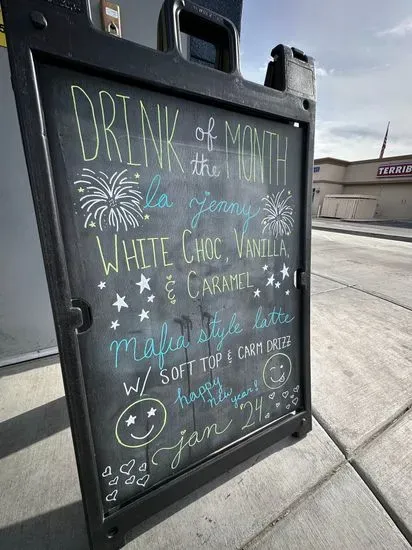 DRINK of the MONTH
la jenny
WHITE CHOC, VANILLA,
& CARAMEL
mafia style latte
W/ SOFT TOP & CARM DRIZZ
happy
new
year!
Jan '24
TERRIB